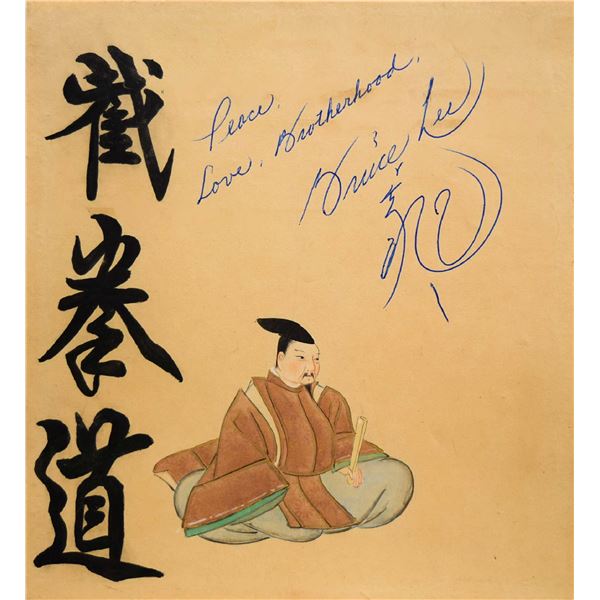 截拳道
Peace,
Love, Brotherhood,
Bruce Lee
龍